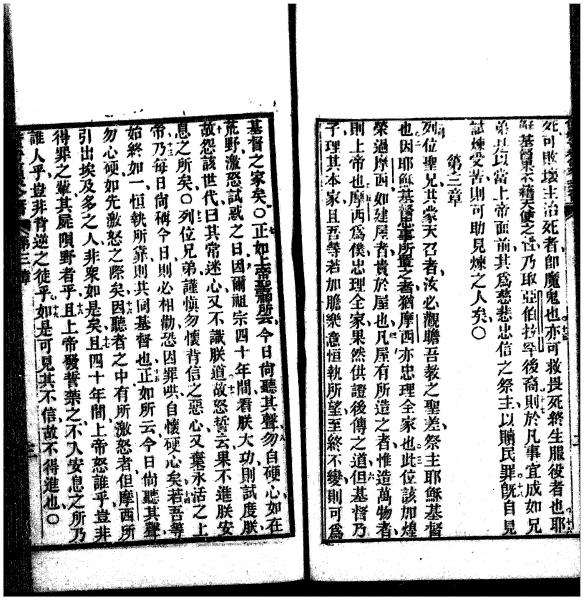 死可敗壞主治死者卽魔鬼也亦可救畏死終生服役者也耶
基督不藉天使之乃取亞伯拉罕後裔則於凡事宜成如兄
弟且以當上帝面前其爲慈悲忠信之祭主以贖民罪旣自見
試煉受苦則可助見煉之人矣〇
第三章
列位聖兄共蒙天召者汝必觀瞻吾教之聖差祭主耶穌基督
也因耶穌基督忠事所置之者猶摩西亦忠理全家也此位該加煌
榮過摩西如建屋者貴於屋也凡屋有所造之者惟造萬物者
則上帝也摩西爲僕忠理全家果然供證後傳之道但基督乃
子理其本家且吾等若加膽樂意恒執所望至終不變則可爲
基督之家矣〇正如上帝聖神所云今日尙聽其聲勿自硬心如在
荒野激怒試戥之日因爾祖宗四十年間看朕大功則試度朕
故怨該世代曰其常迷心又不識朕道故怒誓云果不進朕安
息之所矣〇列位兄弟謹慎勿懷背信之惡心又棄永活之上
帝乃每日尙稱今日則必相勸恐因罪哄自懷硬心矣若吾等
始終如一恒執所靠則共同基督也正如所云今日尙聽其聲
勿心硬如先激怒之際矣因聽者之中有所激怒者但摩西所
引出埃及多之人非衆如是矣且四十年間上帝怒誰乎豈非
得罪之輩其屍隕野者乎且上帝發誓禁之不入安息之所乃
誰人乎豈非肯逆之徒乎如是可見其不信故不得進也〇
第三章